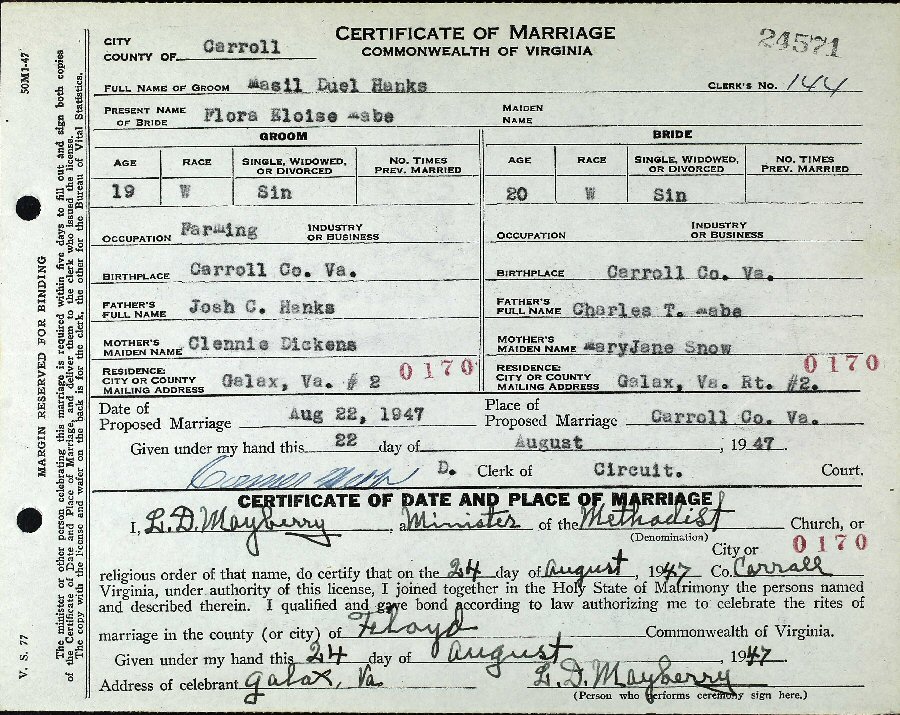 CERTIFICATE OF MARRIAGE
COMMONWEALTH OF VIRGINIA
24571
CITY
COUNTY OF Carroll
FULL NAME OF GROOM Masil Duel Hanks CLERK'S NO. 144
PRESENT NAME OF BRIDE Flora Eloise Mabe MAIDEN NAME
GROOM BRIDE
AGE RACE SINGLE, WIDOWED, OR DIVORCED NO. TIMES PREV. MARRIED AGE RACE SINGLE, WIDOWED, OR DIVORCED NO. TIMES PREV. MARRIED
19 W Sin 20 W Sin
OCCUPATION Farming INDUSTRY OR BUSINESS OCCUPATION INDUSTRY OR BUSINESS
BIRTHPLACE Carroll Co. Va. BIRTHPLACE Carroll Co. Va.
FATHER'S FULL NAME Josh C. Hanks FATHER'S FULL NAME Charles T. Mabe
MOTHER'S MAIDEN NAME Clennie Dickens MOTHER'S MAIDEN NAME MaryJane Snow
RESIDENCE: CITY OR COUNTY MAILING ADDRESS Galax, Va. # 2 0170 RESIDENCE: CITY OR COUNTY MAILING ADDRESS Galax, Va. Rt. #2. 0170
Date of Proposed Marriage Aug 22, 1947 Place of Proposed Marriage Carroll Co. Va.
Given under my hand this 22 day of August, 1947.
D. Clerk of Circuit. Court.
CERTIFICATE OF DATE AND PLACE OF MARRIAGE
I, L. D. Mayberry, a Minister of the Methodist Church, or
(Denomination)
City or 0170
religious order of that name, do certify that on the 24 day of August, 1947 Co. Carroll
Virginia, under authority of this license, I joined together in the Holy State of Matrimony the persons named
and described therein. I qualified and gave bond according to law authorizing me to celebrate the rites of
marriage in the county (or city) of Floyd Commonwealth of Virginia.
Given under my hand this 24 day of August 1947.
Address of celebrant Galax, Va L. D. Mayberry
(Person who performs ceremony sign here.)
50M1-47
MARGIN RESERVED FOR BINDING
V. S. 77
The minister or other person celebrating this marriage is required within five days to fill out and sign both copies
of the Certificate of Date and Place of Marriage, and deliver them to the clerk who issued the license.
The copy with the license and wafer on the back is for the clerk, the other for the Bureau of Vital Statistics.